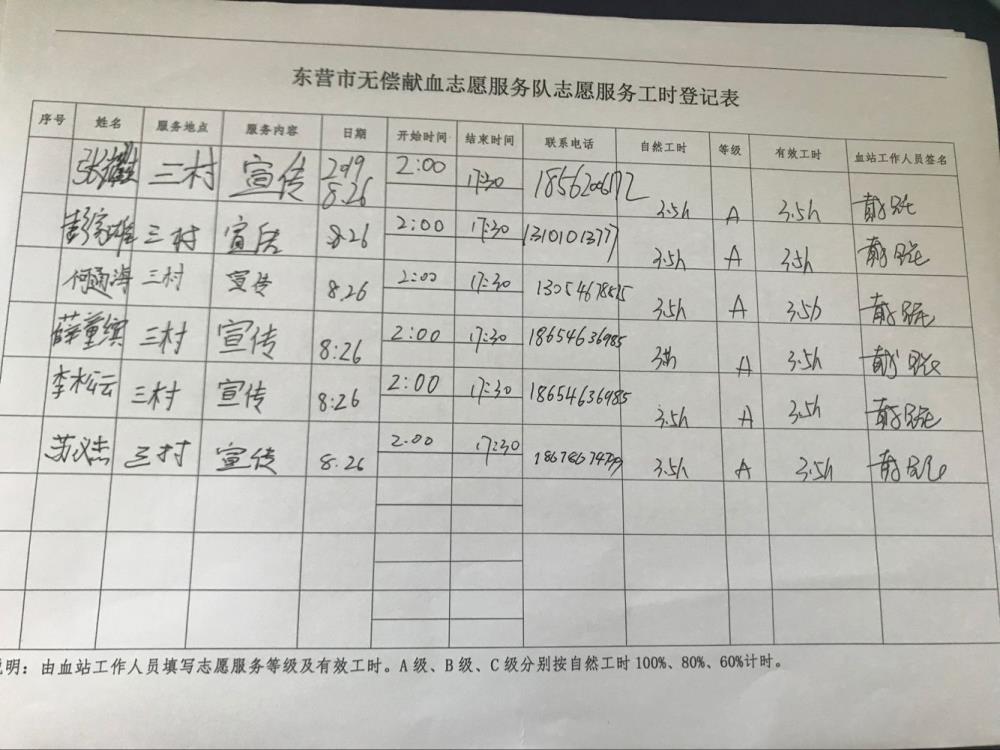 东营市无偿献血志愿服务队志愿服务工时登记表
序号 姓名 服务地点 服务内容 日期 开始时间 结束时间 联系电话 自然工时 等级 有效工时 血站工作人员签名
三村 宣传 2019 8.26 2:00 17:30 3.5h A 3.5h
彭家雄 三村 宣传 8.26 2:00 17:30 13101013777 3.5h A 3.5h
何通海 三村 宣传 8.26 2:00 17:30 3.5h A 3.5h
薛重缤 三村 宣传 8:26 2:00 17:30 18654636985 A 3.5h
李松云 三村 宣传 8:26 2:00 17:30 18654636985 3.5h A 3.5h
苏义杰 三村 宣传 8.26 2.00 17:30 3.5h A 3.5h
明：由血站工作人员填写志愿服务等级及有效工时。A级、B级、C级分别按自然工时100%、80%、60%计时。